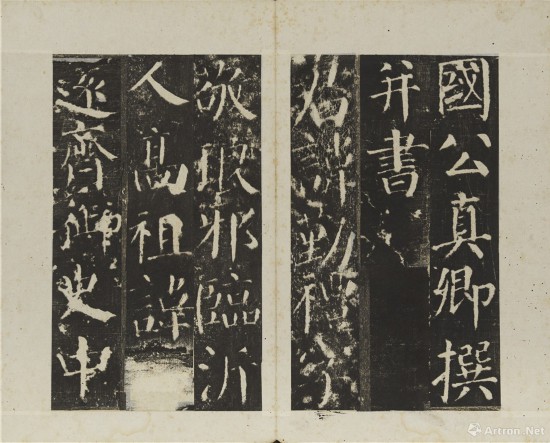 國公真卿撰
并書
君諱勤禮字
敬琅邪臨沂
人高祖諱
遠齊御史中
Artron.Net